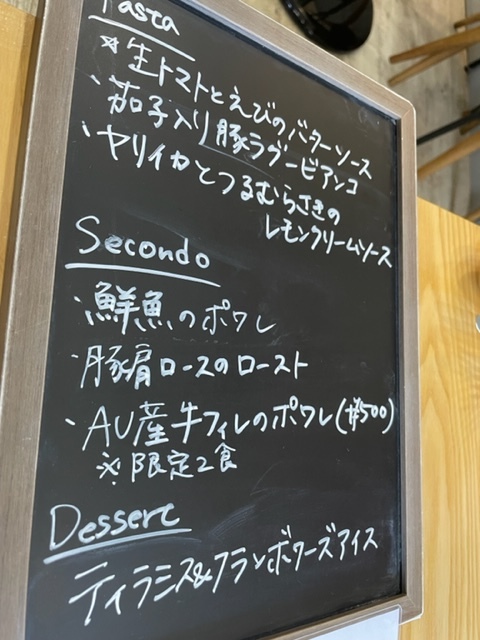 Pasta
☆生トマトとえびのバターソース
・茄子入り豚ラグービアンコ
・ヤリイカとつるむらさきの
レモンクリームソース
Secondo
・鮮魚のポワレ
・豚肩ロースのロースト
・AU産牛フィレのポワレ(+¥500)
※限定2食
Dessert
ティラミス&フランボワーズアイス